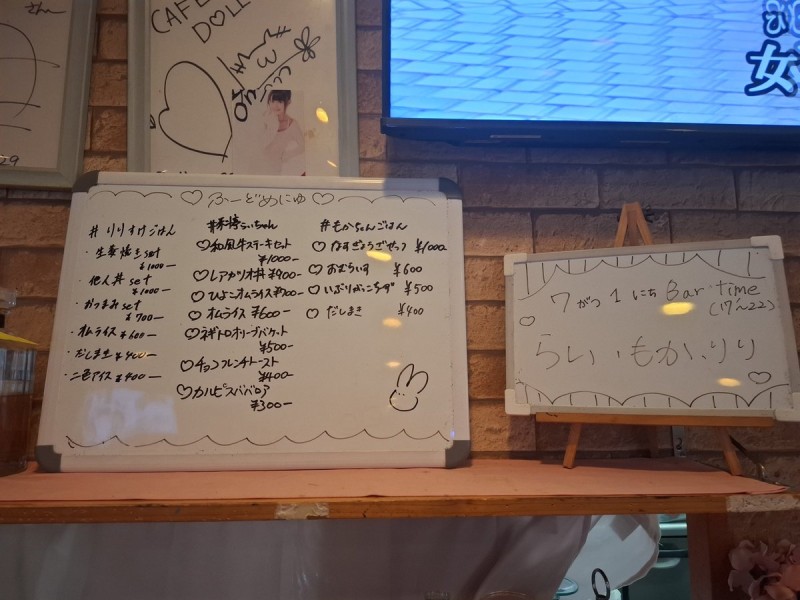 さん
29
CAFE
DOLL
女
♡ ふーどめにゅ ♡
#りりすけごはん
生姜焼きset
¥1000ー
他人丼set
¥1000ー
おつまみset
¥700ー
・オムライス ¥600ー
・だしまき ¥400ー
・二色アイス ¥400ー
ちゃん
♡和風牛ステーキセット
¥1000ー
♡レアカツオ丼 ¥900ー
♡ひよこオムライス ¥700ー
♡オムライス ¥600ー
♡ネギトロオリーブバケット
¥500ー
♡チョコフレンチトースト
¥400ー
♡カルピスババロア
¥300ー
#もかちゃんごはん
♡なすぎょうざせっつ ¥1000
♡おむらいす ¥600
♡いぶりがっこちーず ¥500
♡だしまき ¥400
7がつ1にち Bar・time
(17~22)
らい、もか、りり